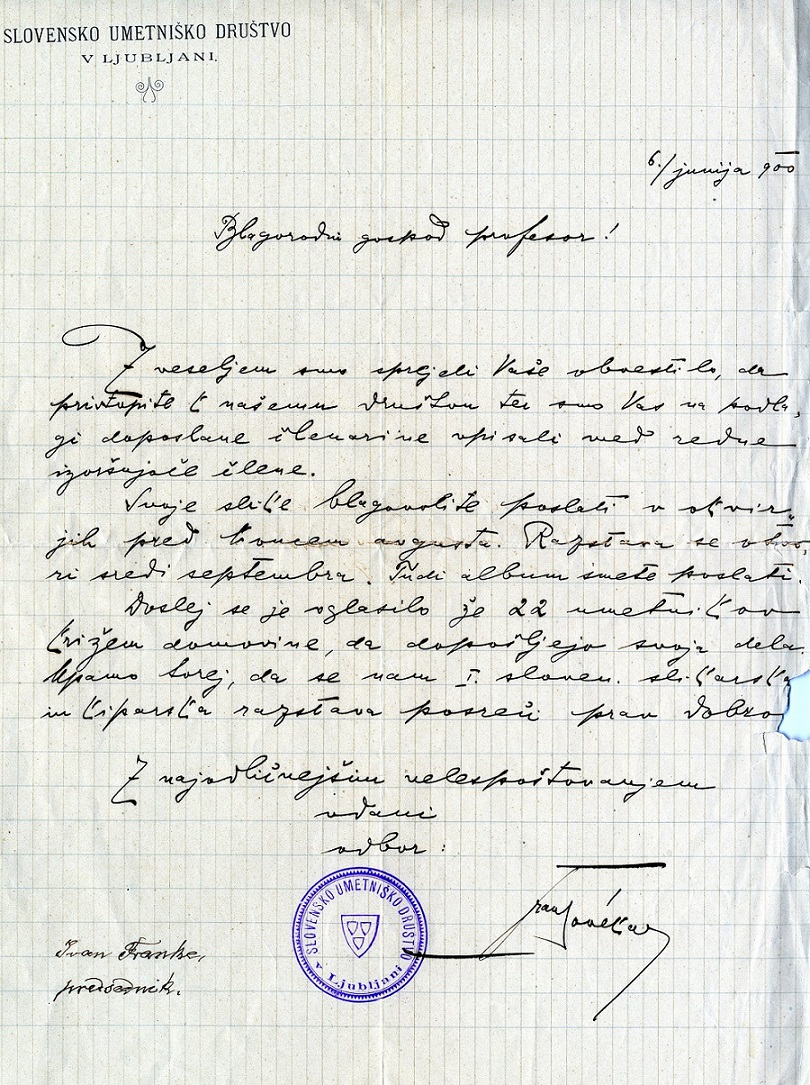 SLOVENSKO UMETNIŠKO DRUŠTVO
V LJUBLJANI.
6./junija 900
Blagorodni gospod profesor!
Z veseljem smo sprejeli Vaše obvestilo, da
pristopite k našemu društvu ter smo Vas na podla-
gi doposlane članarine vpisali med redne
izvršujoče člene.
Svoje slike blagovolite poslati v okvir-
jih pred koncem avgusta. Razstava se otvo-
ri sredi septembra. Tudi album smete poslati.
Doslej se je oglasilo že 22 umetnikov
križem domovine, da dopošljejo svoja dela.
Upamo torej, da se nam I. sloven. slikarska
in kiparska razstava posreči prav dobro
Z najodličnejšim velespoštovanjem
udani
odbor:
SLOVENSKO UMETNIŠKO DRUŠTVO
v Ljubljani
Ivan Franke,
predsednik.
Fran Govékar